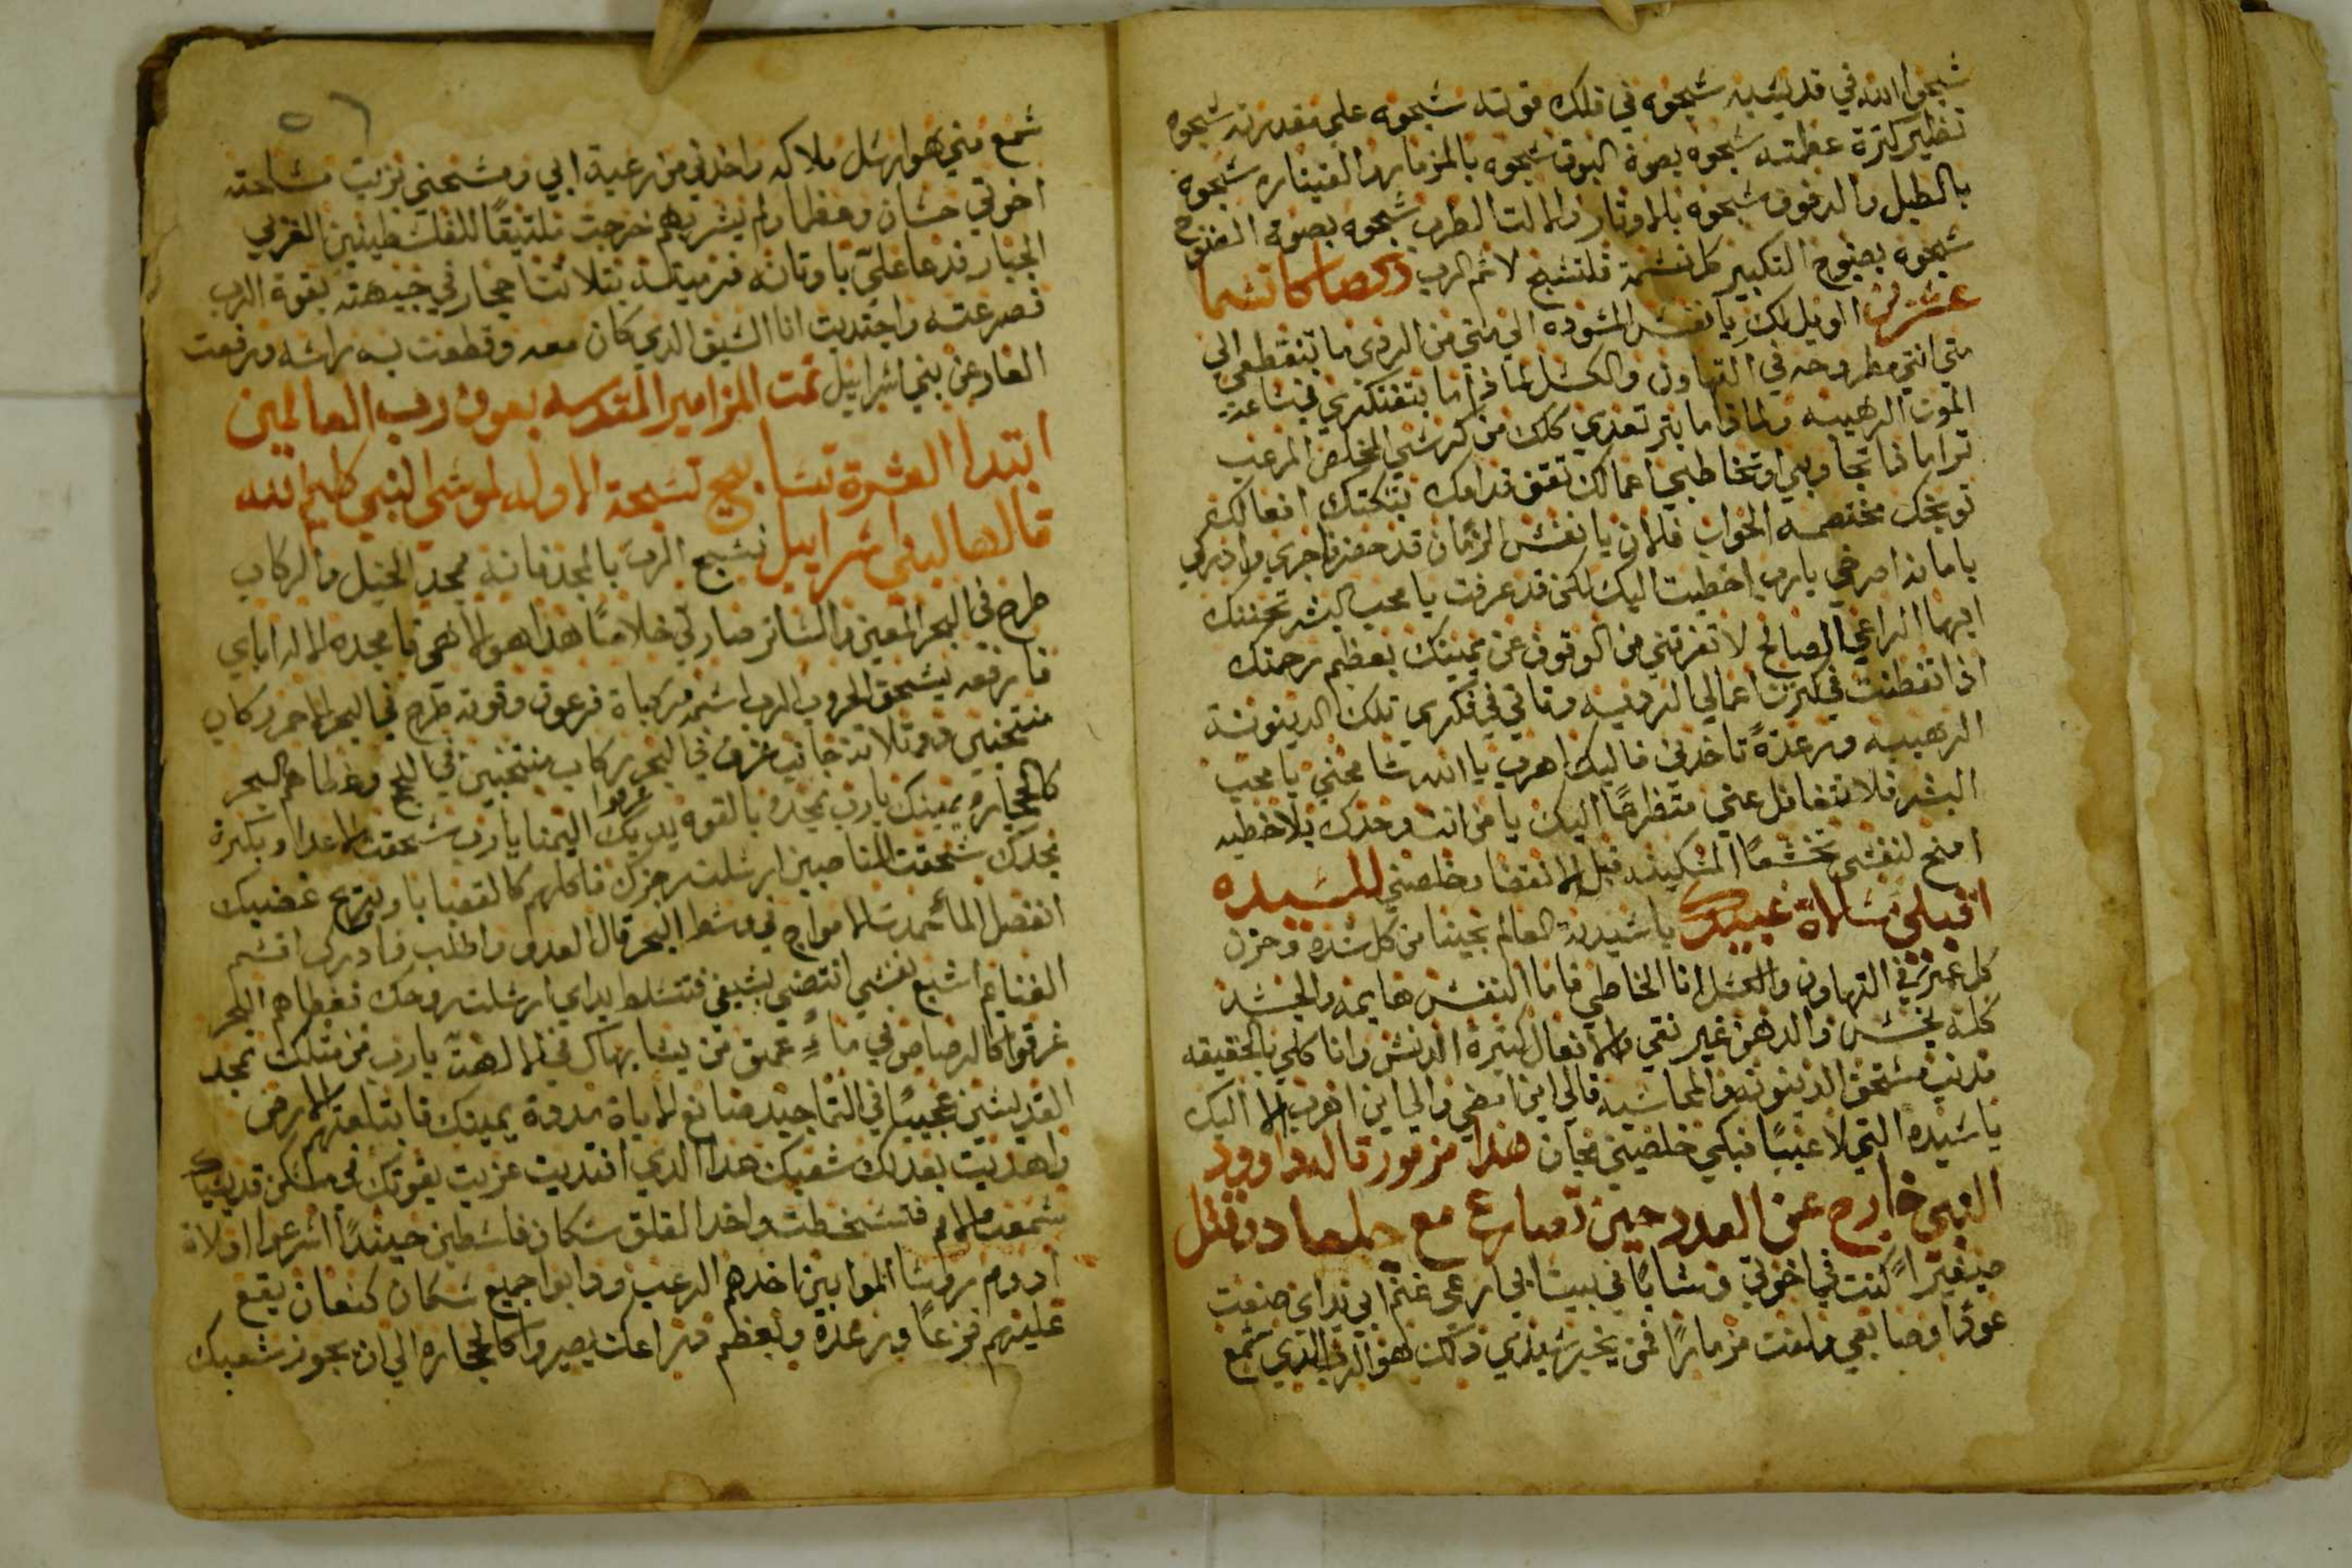 شبحوا الله في قديسيه شبحوه في فلك قوته شبحوه علي مقدرته شبحوه
نظير كترة عظمته شبحوه بصوة البوق شبحوه بالمزمار والقيتاره شبحوه
بالطبل والدفوف شبحوه بالاوتار والالت الطرب شبحوه بصوة الصنوج
شبحوه بصنوج التكبير كل نشمة فلتشبح لاشم الرب
عشرين الويل لك يا نفس المسوده الي متي من الردي ما تنقطعي الي
متي انتي مطروحه في التهاون والكسل لمادا ما بتفتكري في ساعة
الموت الرهيبه ولمادا ما بتر تعدي كلك من كرشي المخلص المرعب
ترا مادا تجاوبي او تخاطبي اعمالك تقف قدامك بتكتك افعالك
توبخك مختصمه الجواب فلان يا نفس الزمان قد حضر فاجري وادركي
باماندا صرخي يارب اخطيت اليك لكن قد عرفت يا محب البشر تحننك
ايها الراعي الصالح لا تفرقني من الوقوف عن يمينك بعظم رحمتك
ادا تفطنت في كترت اعمالي الرديه وقاني في فكري تلك الدينونة
الرهيبه ورعدةً تاخدني فاليك اهرب يا الله شامحني يا محب
البشر فلا تتغافل عني متظرعًا اليك يا من انت وحدك بلا خطيه
امنح لنفسي تخشعًا المسكينه قبل الانقضا وخلصني للسيده
اقبلي مسلاة عبيدك يا سيدة العالم نجينا من كل شدة وحزن
كل عمري في التهاون والكسل انا الخاطي فاما النفس هايمه والجسد
كله نجس والدهن غير نقي والافعال كتيرة الدنس وانا كلي بالحقيقه
مدنب مستحق الدينونه والمحاسبه فالي اين امضي والي اين اهرب الا اليك
يا سيدة التي لا عيبًا فبكي خلصيني مجان هدا مزمور قاله داوود
النبي خارج عن العدد حين تصارع مع جلعاد وقتل
صغيرًا كنت في اخوتي وشابًا في بيت ابي ارعي غنم ابي يداي صنعت
عودًا وصابعي ولفت مزمارًا فمن يخبر سيدي دلك هو الرب الدي شمع
شمع مني هوا ارشل ملاكه واخدني من رعية ابي ومسحني بزيت مشاحته
اخوتي حسان وعظما ولم يشر بهم خرجت ملتيقًا للفلسطينين الغربي
الجبار فدعا علي باوتانه فرميته بتلاتت حجار في جبهته بقوة الرب
فصرعته واجتديت انا الشيق الدي كان معه وقطعت به راشه ورفعت
العار عن بني اشراييل تمت المزامير المقدسه بعون رب العالمين
ابتدا العشرة تشابيح تسبحة الاوله لموشي النبي كليم الله
قالها لبني اشراييل نشبح الرب بالمجد فانه مجد الخيل والركاب
طرح في البحر المعين والساتر صار لي خلاصًا هدا هو الاهي فامجده الاه اباي
فارفعه يشحق الحروب الرب اشمه مركباة فرعون وقوته طرح في البحر الاحمر ركاب
منتجبين دو تلاتة جانب غرق في البحر ركاب منتجبين في اللج وغطاهم البحر
كالحجاره يمينك يارب تمجده بالقوه يديك اليمنا يارب شحقت الاعدا وبكترة
مجدك شحقت المناصبين ارشلت رجزك فاكلهم كالقصبا وبريح غضبك
انفصل الما تجمدت الامواج في وسط البحر قال العدو واطلب فادرك اقسم
الغنايم اشبع نفسي انتضي بسيفي فتسلط يداي ارشلت روحك فغطاهم البحر
غرقوا كالرصاص في ماءٍ عميق من يشابهاك في الالهة يارب من متلك تمجد
القديسين عجيبًا في التماجيد صانع الاياة مدة يمينك فابتلعتهم الارض
واهديت بعدلك شعبك هدا الدي افتديت عزيت بقوتك في مسكن قديسيك
شمعت الامم فتسخطت واخدا القلق سكان فلسطين حينيدًا اشرعوا اولاة
ادوم وروشا الموابين اخدهم الرعب ودابوا جميع سكان كنعان يقع
عليهم فزعًا ورعدة وبعظم دراعك يصيروا كالحجاره الي ان يجوز شعبك